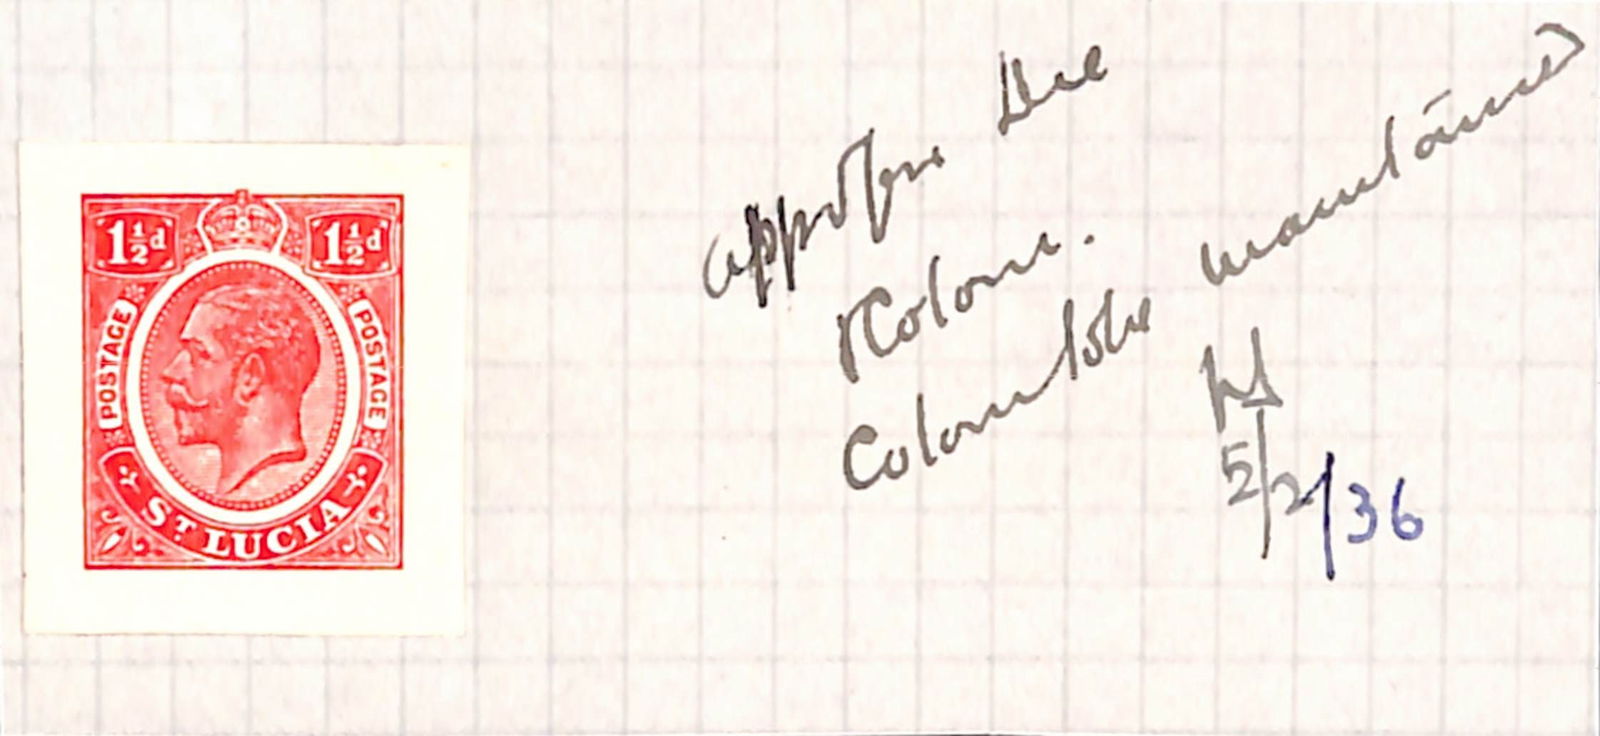 1½d 1½d
POSTAGE POSTAGE
ST LUCIA
Approve Die
Colour.
Colour to be maintained
5/2/36